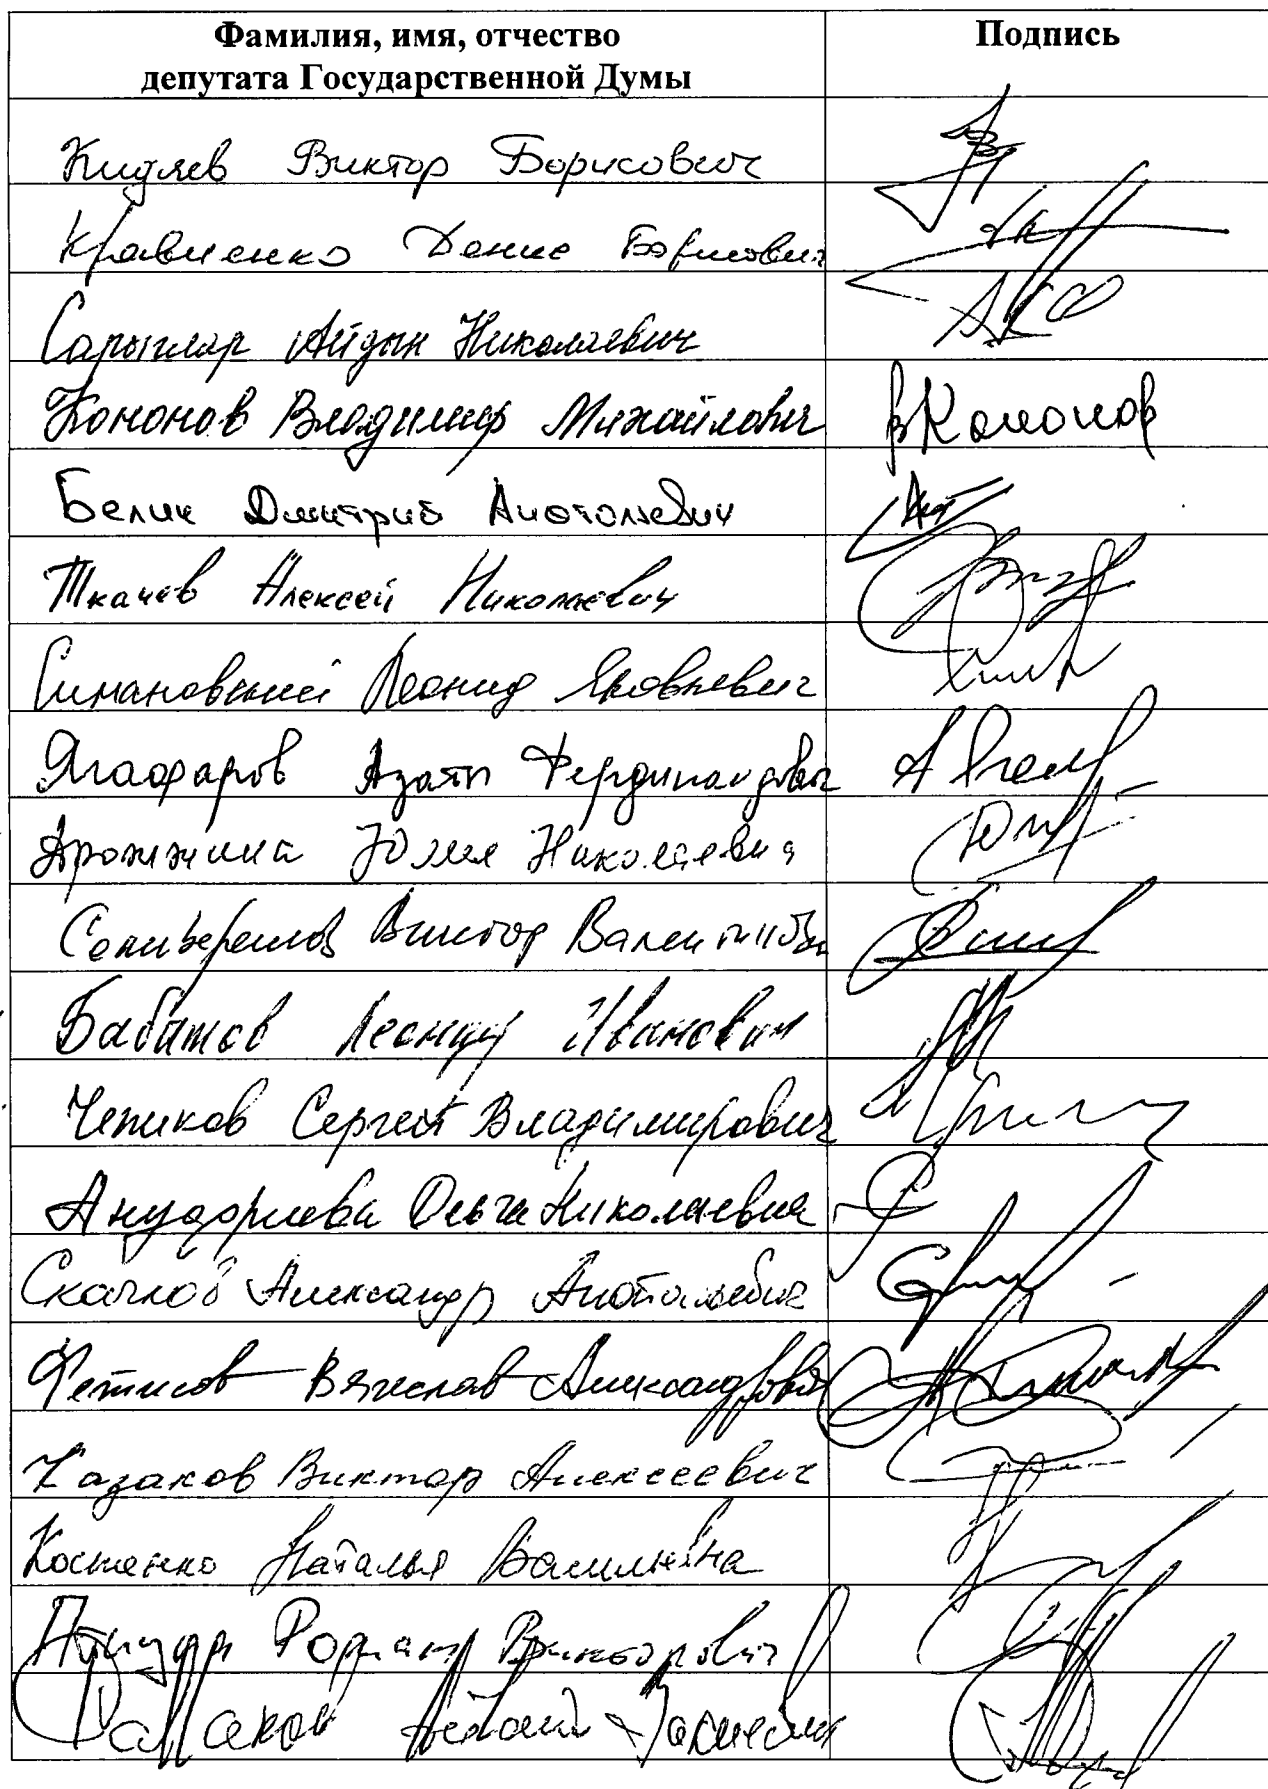 Фамилия, имя, отчество Подпись
депутата Государственной Думы
Кидяев Виктор Борисович
Кравченко Денис Борисович
Сарыглар Айдын Николаевич
Кононов Владимир Михайлович вКононов
Белик Дмитрий Анатольевич
Ткачев Алексей Николаевич
Симановский Леонид Яковлевич
Ягафаров Азат Фердинандович
Дрожжина Юлия Николаевна
Селиверстов Виктор Валентинович
Бабашов Леонид Иванович
Чепиков Сергей Владимирович
Ануфриева Ольга Николаевна
Скачков Александр Анатольевич
Фетисов Вячеслав Александрович
Казаков Виктор Алексеевич
Костенко Наталья Васильевна
Роман Викторович